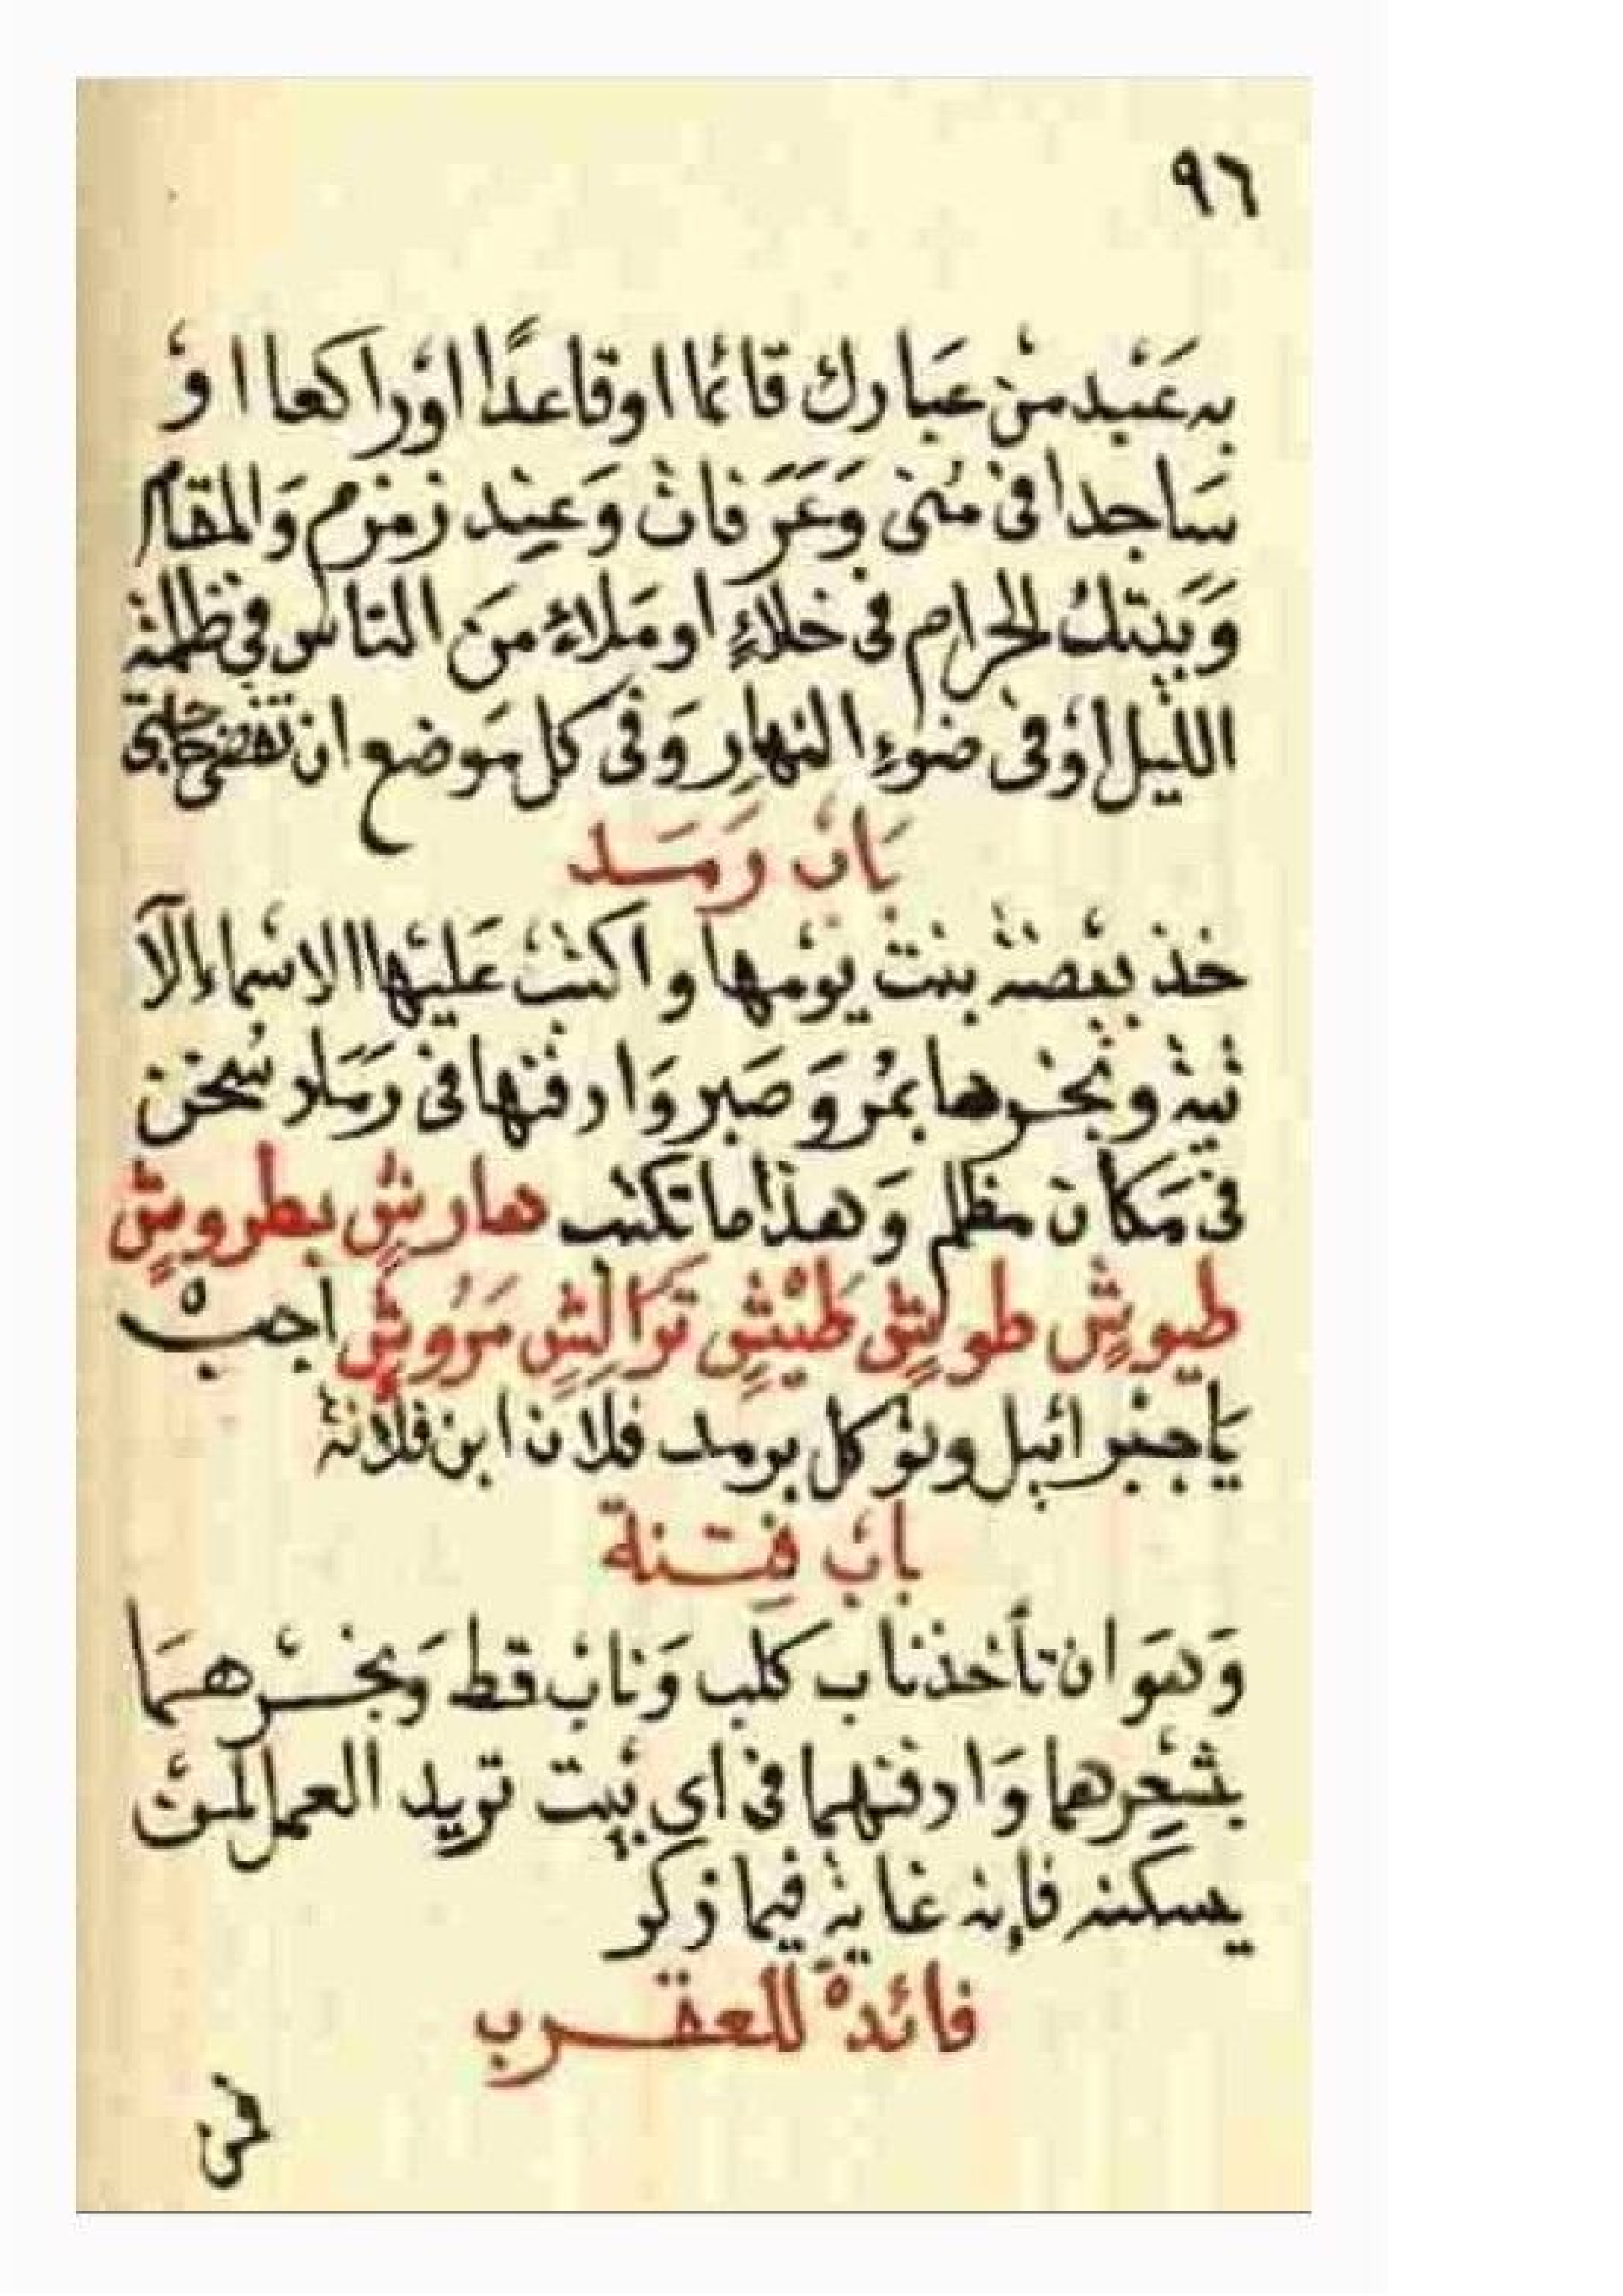 ٩٦
به عَبْد من عبادك قائما اوقاعدًا اوْراكعا اوْ
سَاجدا فى منى وَعَرَفات وَعِند زمزم وَالمقام
وَبيتك الحرام فى خلاءٍ او مَلاءٍ منَ الناس فى ظلمة
الليل اوْفى ضوءِ النهارِ وَفى كل مَوضع ان تقضى حاجتى
بَابُ رَمَد
خذ بيْضة بنت يوْمها واكتبْ عَليْها الاسْماء الآ
تية وبخرها بمُر وَصَبر وَادفنها فى رَمَاد سُخن
فى مَكان مظلم وَهذا ما تكتب هارشٍ بطروشٍ
طيوشٍ طوشٍ طيْشٍ تَرَاكشٍ مَرُوشٍ اجبْ
يَاجبْرائيل وتوْكل برمد فلان ابن فلانة
بابُ فِتنة
وَهوَ ان تأخذ ناب كلب وَنابْ قط وَبخرْهمَا
بشعْرهما وَادفنهما فى اى بيْت تريد العمل لمنْ
يسكنه فإنه غاية فيما ذكر
فائدةْ للعقرب
فى